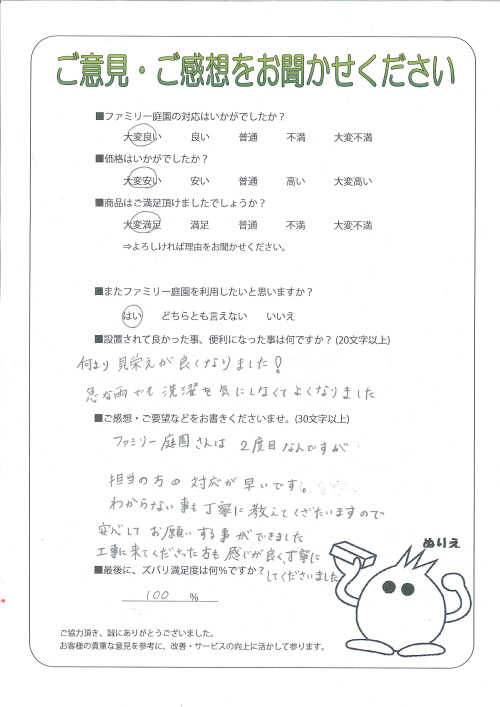 ご意見・ご感想をお聞かせください
■ファミリー庭園の対応はいかがでしたか？
大変良い 良い 普通 不満 大変不満
■価格はいかがでしたか？
大変安い 安い 普通 高い 大変高い
■商品はご満足頂けましたでしょうか？
大変満足 満足 普通 不満 大変不満
⇒よろしければ理由をお聞かせください。
■またファミリー庭園を利用したいと思いますか？
はい どちらとも言えない いいえ
■設置されて良かった事、便利になった事は何ですか？(20文字以上)
何より見栄えが良くなりました！
急な雨でも洗濯を気にしなくてよくなりました
■ご感想・ご要望などをお書きくださいませ。(30文字以上)
ファミリー庭園さんは 2度目なんですが
担当の方の対応が早いです。
わからない事も丁寧に教えてくださいますので
安心してお願いする事ができました
工事に来てくださった方も感じが良く丁寧に
してくださいました
ぬりえ
■最後に、ズバリ満足度は何％ですか？
100 %
ご協力頂き、誠にありがとうございました。
お客様の貴重な意見を参考に、改善・サービスの向上に活かして参ります。